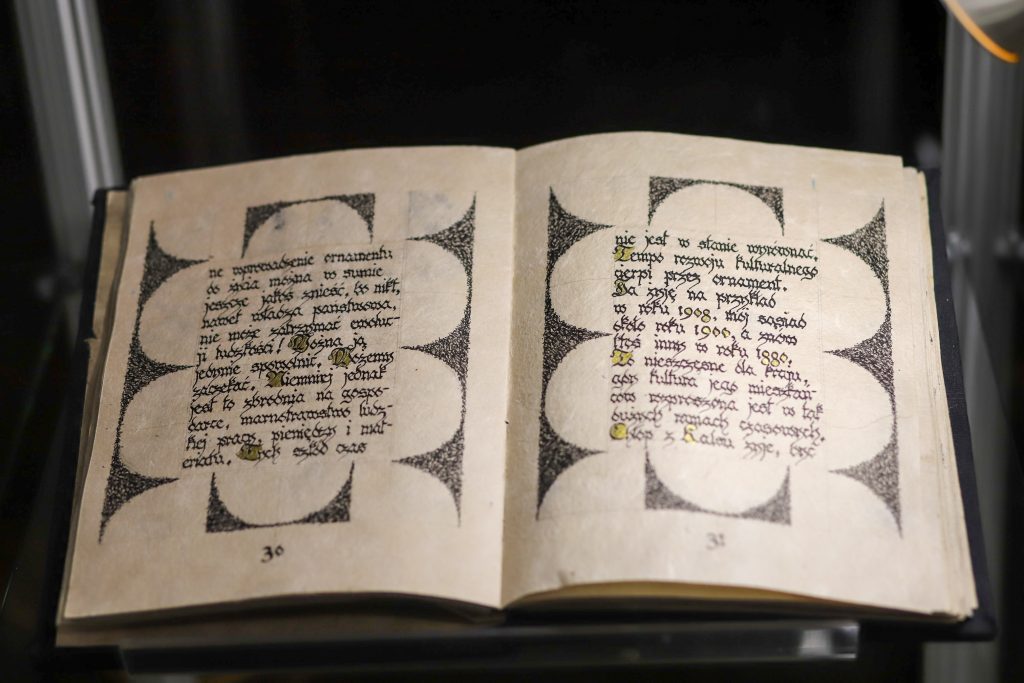 ne wprowadzenie ornamentu
do życia można w sumie
jeszcze jakoś znieść, bo nikt,
nawet władza państwowa,
nie może zatrzymać ewolu-
cji ludzkości! Można ją
jedynie spowolnić. Możemy
zaczekać. Niemniej jednak
jest to zbrodnia na gospo-
darce, marnotrawstwo ludz-
kiej pracy, pieniędzy i mat-
eriału. Tych szkód czas
30
nie jest w stanie wyrównać.
Tempo rozwoju kulturalnego
cierpi przez ornament.
Ja żyję na przykład
w roku 1908, mój sąsiad
około roku 1900, a znów
ktoś inny w roku 1880.
To nieszczęsne dla kraju,
gdy kultura jego mieszkań-
ców rozproszona jest w tak
dużych ramach czasowych.
Chłop z Kalsu żyje, być
31